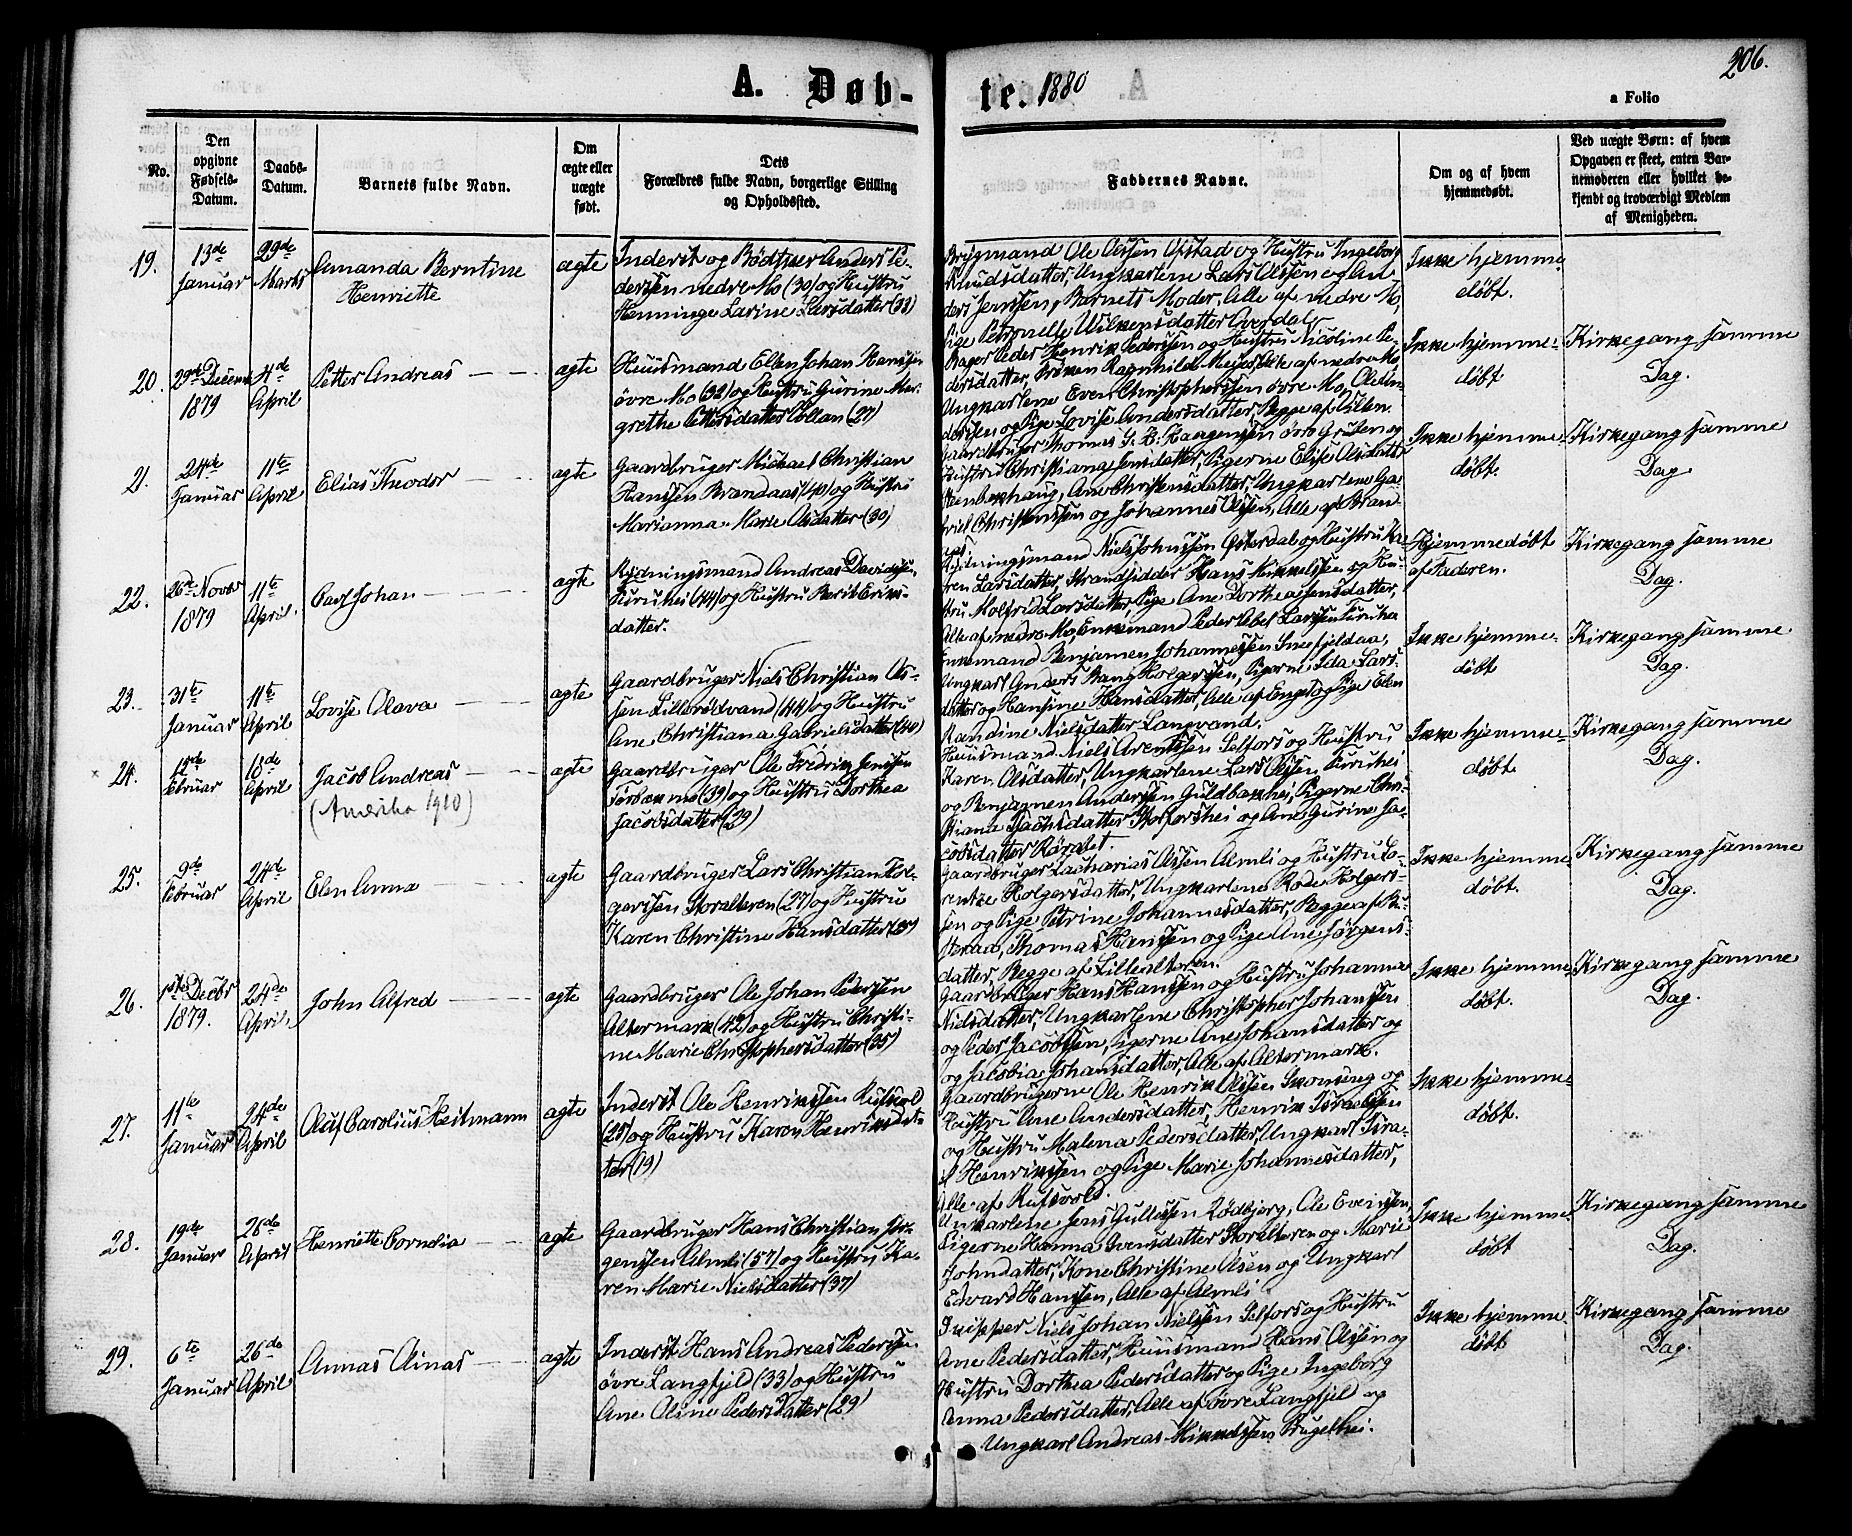 206.
A. Døb-
te. 1880
a Folio
No.
Den
opgivne
Fødsels-
Datum.
Daabs-
Datum.
Barnets fulde Navn.
Om
ægte eller
uægte
født.
Dets
Forældres fulde Navn, borgerlige Stilling
og Opholdssted.
Faddernes Navne.
Om og af hvem
hjemmedøbt.
Ved uægte Børn: af hvem
Opgaven er skeet, enten Bar-
nemoderen eller hvilket be-
kjendt og troværdigt Medlem
af Menigheden.
19.
13de
Januar
29de
Marts
Amanda Berntine
Henriette
ægte
Inderst og Bødtker Anders Pe-
dersen nedre Mo (30) og Hustru
Henninge Larine Larsdatter (33)
Brygmand Ole Olssen Opstad og Hustru Ingeborg
Knudsdatter, Ungkarlene Lars Olssen og An-
ders Jenssen, Barnets Moder, Alle af nedre Mo,
Pige Petronelle Wilkensdatter Overdal.
Ikke hjemme-
døbt.
20.
29de Decemb
1879
4de
April
Petter Andreas
ægte
Huusmand Elten Johan Hanssen
øvre Mo (32) og Hustru Gurine Mar-
grethe Pettersdatter Collan (27)
Bager Peder Henrik Pedersen og Hustru Nicoline Pe-
dersdatter, Frøken Ragnhilda Meyer, Alle af nedre Mo
Ungkarlene Even Christophersen øvre Mo, Ole An-
dersen og Pige Lovise Andersdatter, Begge af Ytteren.
Ikke hjemme-
døbt
Kirkegang samme
Dag.
21.
24de
Januar
11te
April
Elias Theodor
ægte
Gaardbruger Michael Christian
Hanssen Brandaas (40) og Hustru
Marianna Marie Olsdatter (30)
Gaardbruger Thomas St. B. Haagenssen øvre Gruben og
Hustru Christiana Jensdatter, Pigerne Elise Olsdatter
Stenbækhaug, Ane Christensdatter, Ungkarlene Ga-
briel Christenssen og Johannes Olssen, Alle af Bran-
aas
Ikke hjemme-
døbt.
Kirkegang samme
Dag.
22.
26de Novbr
1879
11te
April.
Carl Johan
ægte
Rydningsmand Andreas Davidsen,
Furuhei (44) og Hustru Berit Eriks-
datter.
Rydningsmand Niels Johnssen Østerdal og Hustru Ka-
ren Larsdatter, Strandsidder Hans Mikkelssen og Hu-
stru Molfrid Larsdatter, Pige Ane Dorthea Jensdatter,
Alle af nedre Mo, Enkemand Peder Abel Larssen Furuhei
Hjemmedøbt
af Faderen.
Kirkegang samme
Dag.
23.
31te
Januar
11te
April
Lovise Olava
ægte
Gaardbruger Niels Christian Ols-
sen Lillerødvand (44) og Hustru
Ane Christiana Gabrielsdatter (40)
Enkemand Benjamen Johannessen Snefjeldaa,
Ungkarl Anders Bang Holgerssen, Pigerne Ida Lars-
datter og Hansine Hansdatter, Alle af Enget og Pige Elen
Randine Nielsdatter Langvand.
Ikke hjemme-
døbt
Kirkegang samme
Dag.
24.
12de
Februar
18de
April
Jacob Andreas
(Amerika 1910)
ægte
Gaardbruger Ole Fredrik Jenssen
Forbækmo (39) og Hustru Dorthea
Jacobsdatter (29)
Huusmand Niels Arentssen Selfors og Hustru
Karen Olsdatter, Ungkarlene Lars Olssen Furuhei
og Benjamen Anderssen Guldbækhei, Pigerne Chri-
stiane Isachsdatter Storforshei og Ane Gurine Ja-
cobsdatter Rørnæst.
Ikke hjemme-
døbt.
Kirkegang samme
Dag.
25.
9de
Februar
24de
April
Elen Anna
ægte
Gaardbruger Lars Christian Hol-
gerssen Storalteren (27) og Hustru
Karen Christine Hansdatter (25)
Gaardbruger Zacharias Olssen Almli og Hustru Lo-
rentze Holgersdatter, Ungkarlene Rode Holgers-
sen og Pige Petrine Johannesdatter, Begge af Bu-
steraa, Thomas Hanssen og Pige Ane Jørgens-
datter, Begge af Lillealteren.
Ikke hjemme-
døbt.
Kirkegang samme
Dag.
26.
1ste Decbr
1879.
24de
April.
John Alfred
ægte
Gaardbruger Ole Johan Pederssen
Altermark (42) og Hustru Christi-
ne Marie Christophersdatter (35)
Gaardbruger Hans Hanssen og Hustru Johanna
Nielsdatter, Ungkarlene Christopher Johanssen
og Peder Jacobssen, Pigerne Ane Johansdatter og
og Jacobia Johansdatter, Alle af Altermark.
Ikke hjemme-
døbt.
Kirkegang samme
Dag.
27.
11te
Januar
24de
April
Oluf Carolius Heitmann
ægte
Inderst Ole Henrikssen Rufsvold
(25) og Hustru Karen Henriksdat-
ter (19)
Gaardbrugerne Ole Henrik Olssen Skonseng og
Hustru Ane Andersdatter, Henrik Israelssen
og Hustru Malena Pedersdatter, Ungkarl Isra-
el Henrikssen og Pige Marie Johannesdatter,
Alle af Rufsvold.
Ikke hjemme-
døbt.
28.
19de
Januar
26de
April
Henriette Cornelia
ægte
Gaardbruger Hans Christian Jør-
genssen Almli (57) og Hustru Ka-
ren Marie Nielsdatter (37)
Unkarlene Jens Gullessen Rødbjerg, Ole Evenssen,
Pigerne Hanna Svensdatter Storalteren og Marie
Johndatter, Kone Christine Olsen og Ungkarl
Edvard Hanssen, Alle af Almli.
Ikke hjemme-
døbt
Kirkegang samme
Dag.
29.
6te
Januar
26de
April
Annas Ainas
ægte
Inderst Hans Andreas Pederssen
øvre Langfjeld (33) og Hustru
Ane Oline Pedersdatter (29)
Skipper Niels Johan Nielssen Selfors og Hustru
Ane Pedersdatter, Huusmand Hans Olssen og
Hustru Dorthea Pedersdatter og Pige Ingeborg
Anna Pedersdatter, Alle af øvre Langfjeld og
Ungkarl Andreas Mikkelssen Brugelhei.
Ikke hjemme
døbt
Kirkegang samme
Dag.